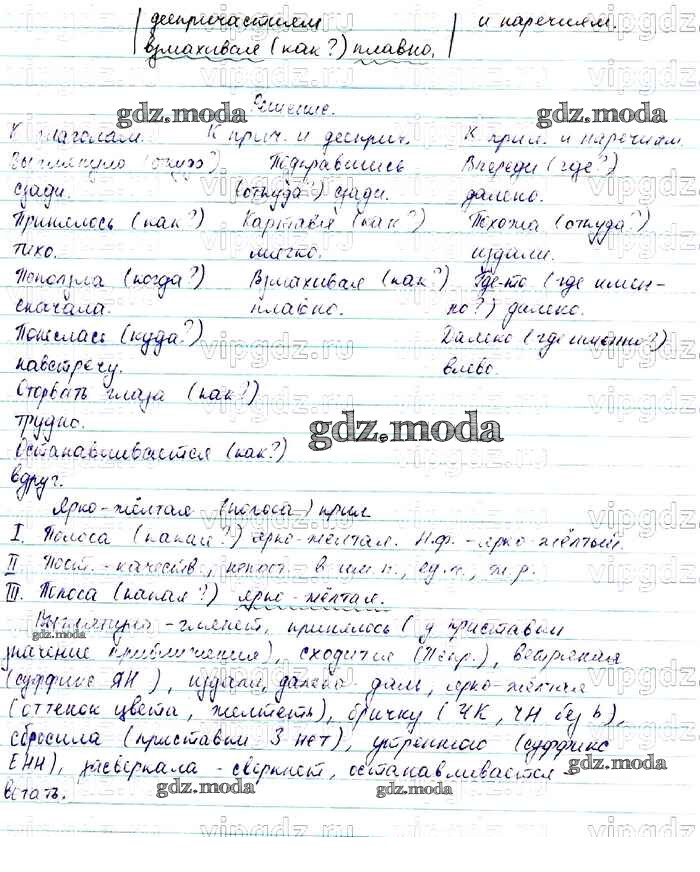 деепричастием и наречиям.
взмахивая (как?) плавно.
Решение.
К глаголам. К прич. и дееприч. К прил. и наречиям.
Выглянуло Подкравшись Впереди (где?)
сзади. (откуда?) сзади. далеко.
Принялось (как?) Картавя (как?) Похожа (откуда?)
тихо. мягко. издали.
Поползла (когда?) Взмахивая (как?) Где-то (где имен-
сначала. плавно. но?) далеко.
Понеслась (куда?) Далеко (где именно?)
навстречу. влево.
Оторвать глаза (как?)
трудно.
Останавливается (как?)
вдруг.
Ярко-жёлтая (полоса) прил
I. Полоса (какая?) ярко-жёлтая. Н.ф. - ярко-жёлтый.
II Пост. - качеств., непост. в им.п., ед.ч., ж.р.
III. Полоса (какая?) ярко-жёлтая.
Выглянуло - глянет, принялось (у приставки
значение приближения), сходится (Пр.), ветряная
(суффикс ЯН), издали, далеко даль, ярко-жёлтая
(оттенок цвета, желтеть), бричку (ЧК, ЧН без ь),
сбросила (приставки З нет), утреннего (суффикс
ЕНН), засверкала - сверкнет, останавливается -
встать.
gdz.moda
gdz.moda
gdz.moda
gdz.moda
gdz.moda
gdz.moda
gdz.moda
gdz.moda